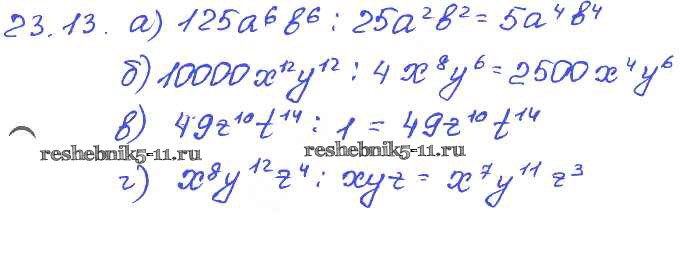 23.13. а) 125a⁶b⁶ : 25a²b² = 5a⁴b⁴
б) 10000x¹²y¹² : 4x⁸y⁶ = 2500x⁴y⁶
в) 49z¹⁰t¹⁴ : 1 = 49z¹⁰t¹⁴
reshebnik5-11.ru reshebnik5-11.ru
г) x⁸y¹²z⁴ : xyz = x⁷y¹¹z³